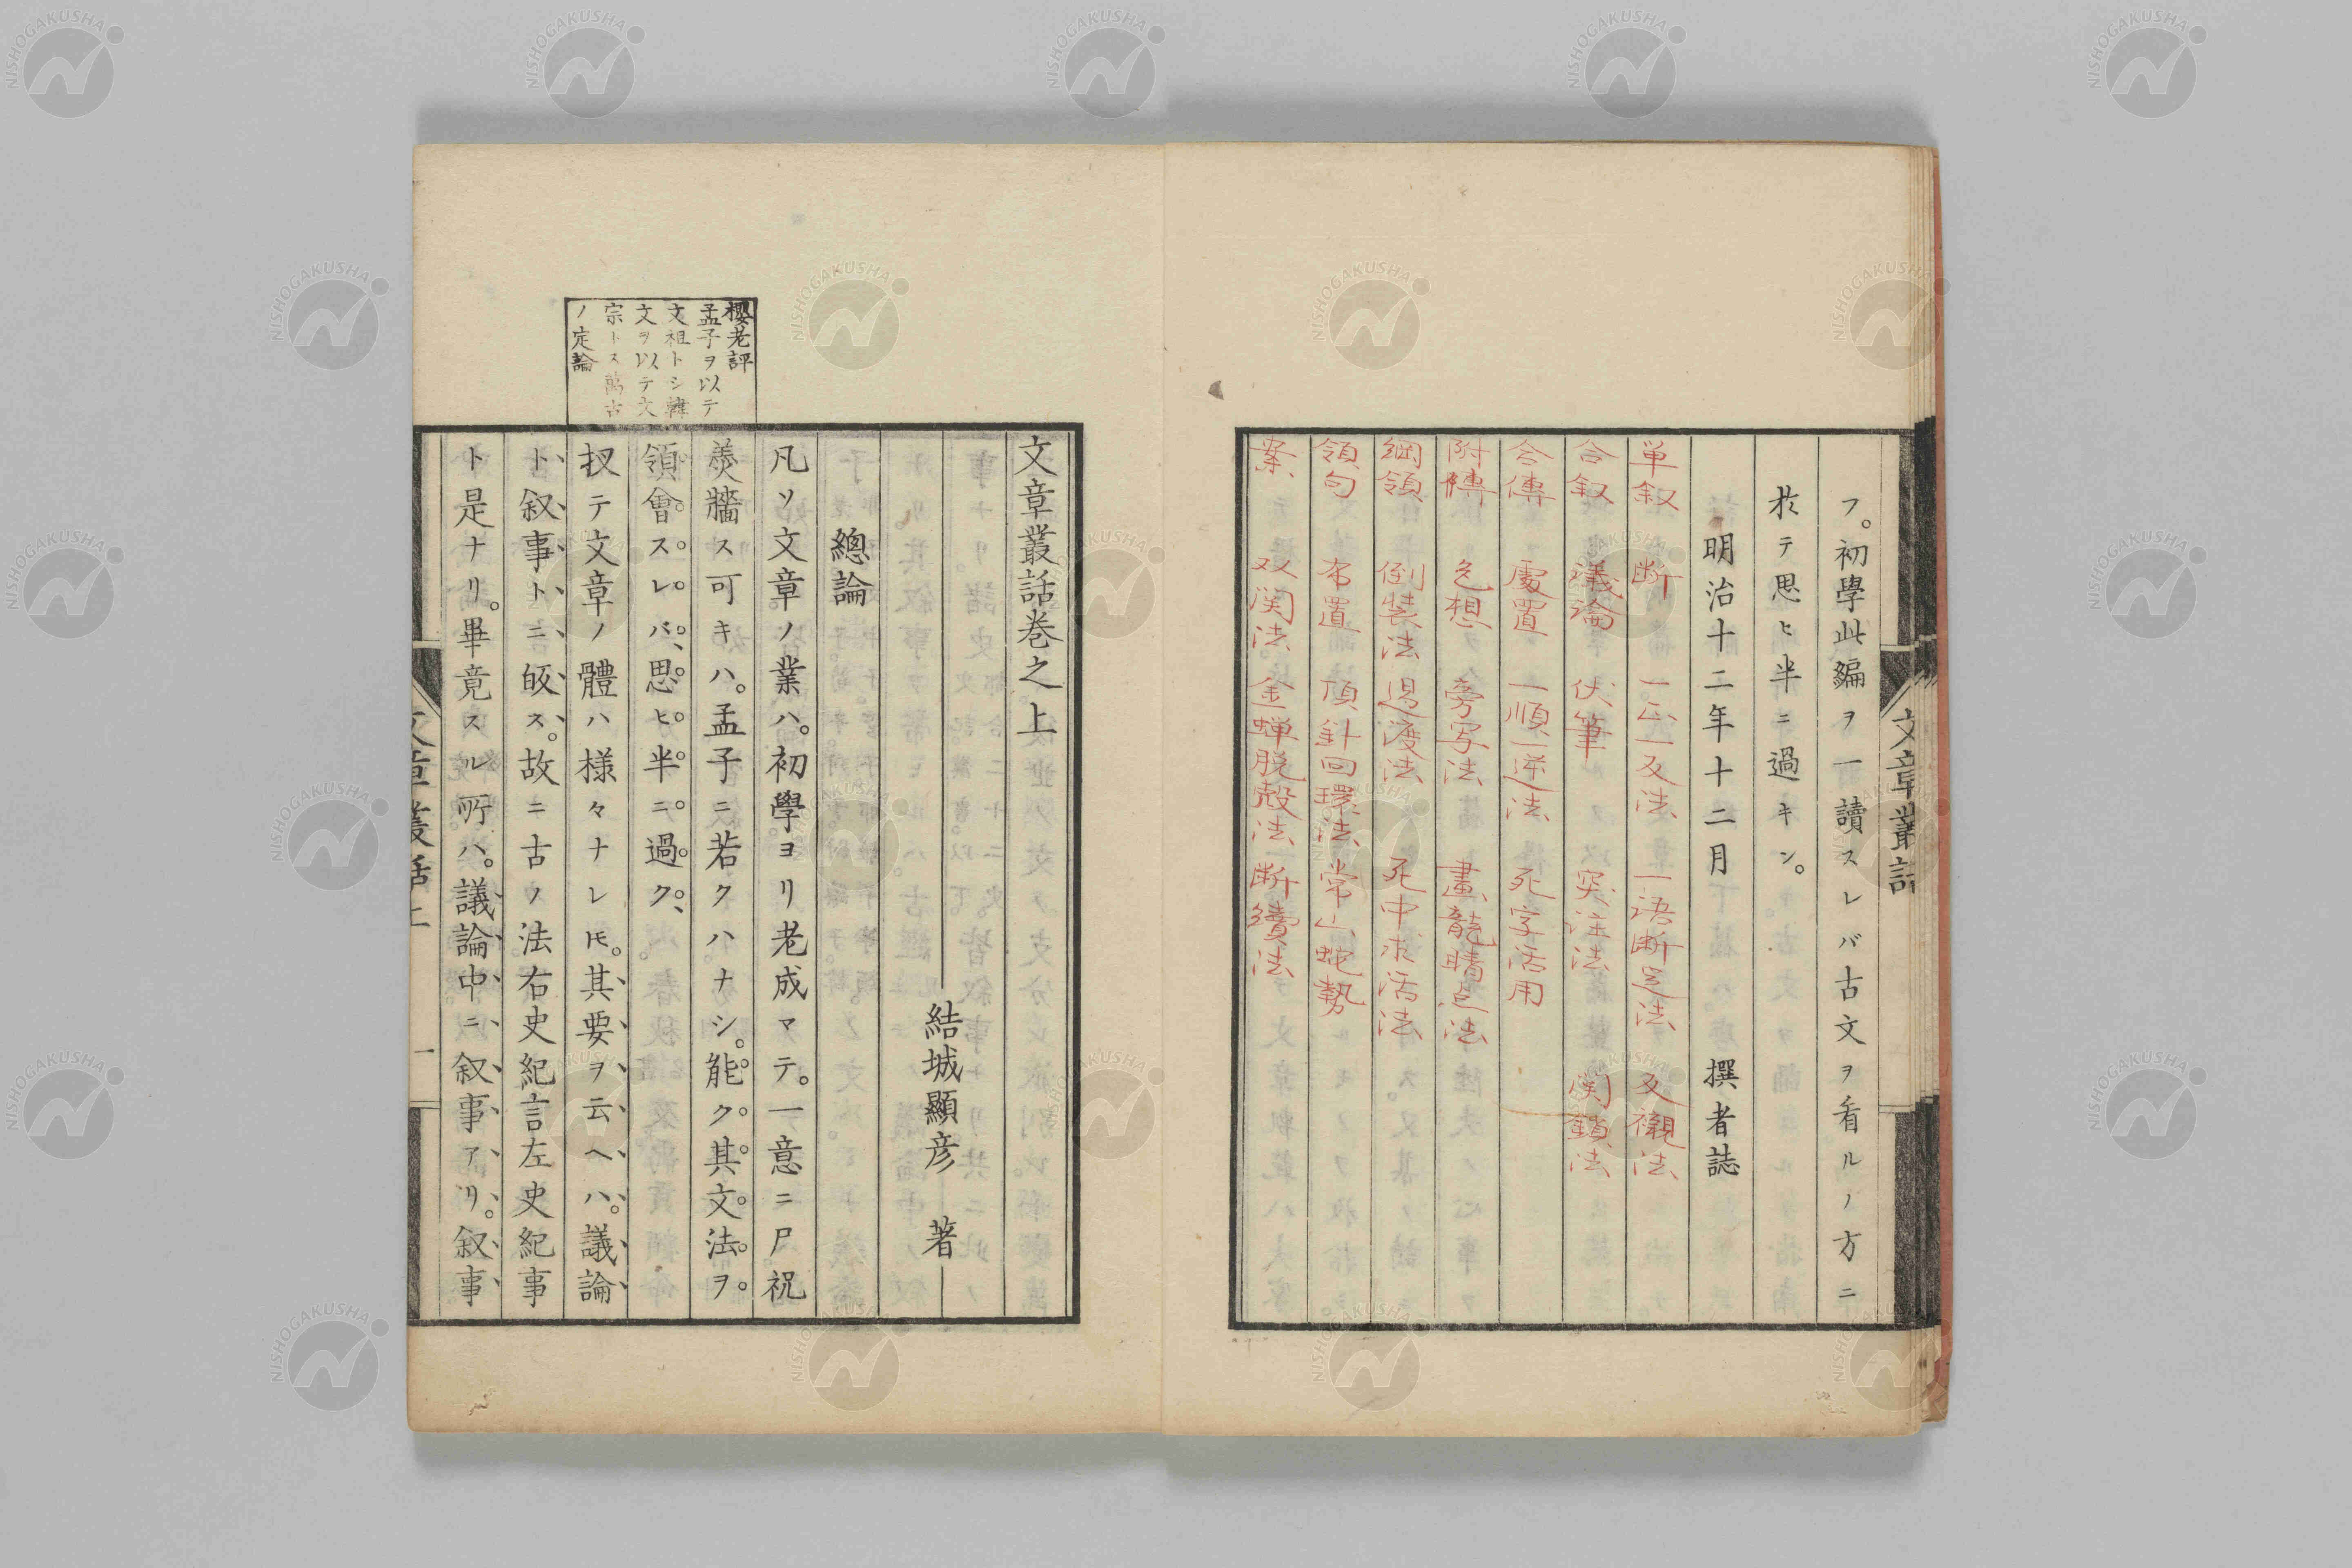 フ。初學此編ヲ一讀スレバ古文ヲ看ルノ方ニ
於テ思ヒ半ニ過キン。
明治十二年十二月 撰者誌
単叙 断 一正一反法 一語断定法 反襯法
合叙 議論 伏筆 突注法 関鎖法
合傳 處置 一順一逆法 死字活用
附傳 色想 旁写法 畫龍晴点法
綱領 倒裝法 過渡法 死中求活法
領句 布置 頂針回環法 常山蛇勢
案 双関法 金蝉脱殻法 断續法
文章叢話
文章叢話巻之上
結城顯彦 著
總論
凡ソ文章ノ業ハ。初學ヨリ老成マテ。一意ニ尸祝
羹牆ス可キハ。孟子ニ若クハナシ。能ク其文法ヲ
領會スレバ、思ヒ半ニ過ク、
扨テ文章ノ體ハ様々ナレ𪜈。其要ヲ云ヘハ。議論
ト、叙事トニ皈ス。故ニ古ノ法右史紀言左史紀事
ト是ナリ。畢竟スル所ハ。議論中ニ叙事アリ。叙事
櫻老評
孟子ヲ以テ
文祖トシ韓
文ヲ以テ文
宗トス萬古
ノ定論
文章叢話上
一
NISHOGAKUSHA